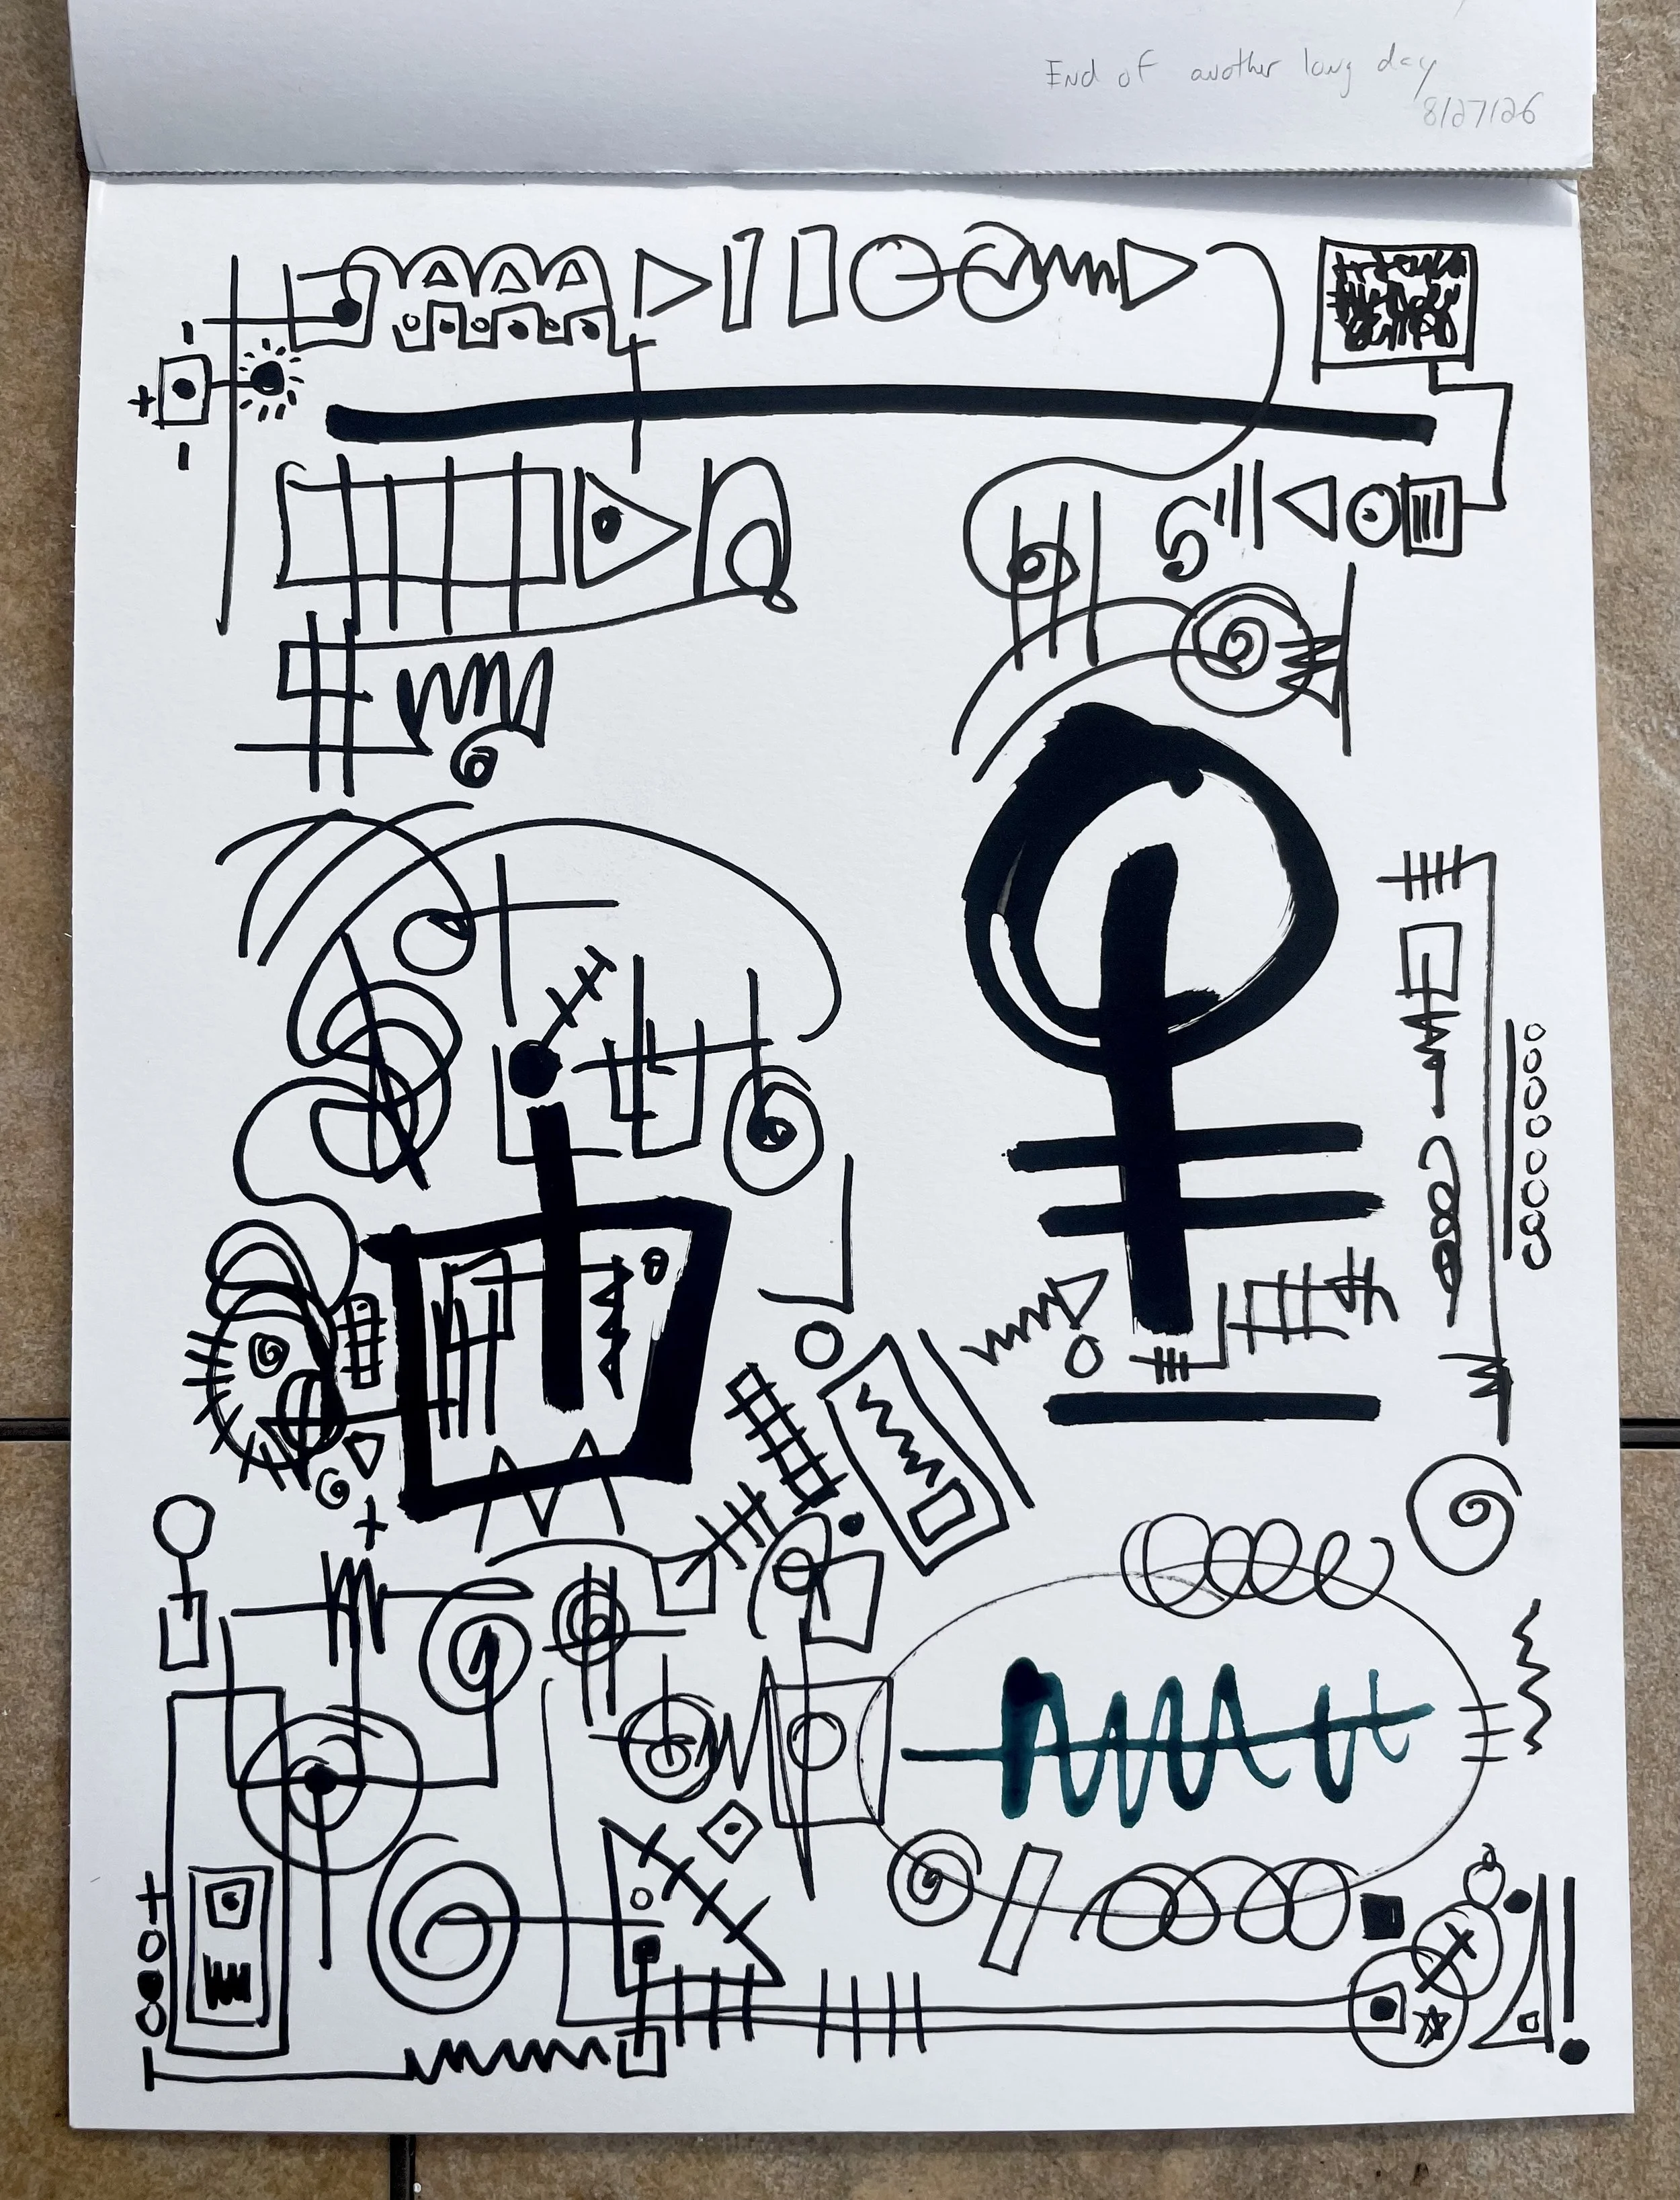 End of another long day
8/27/26